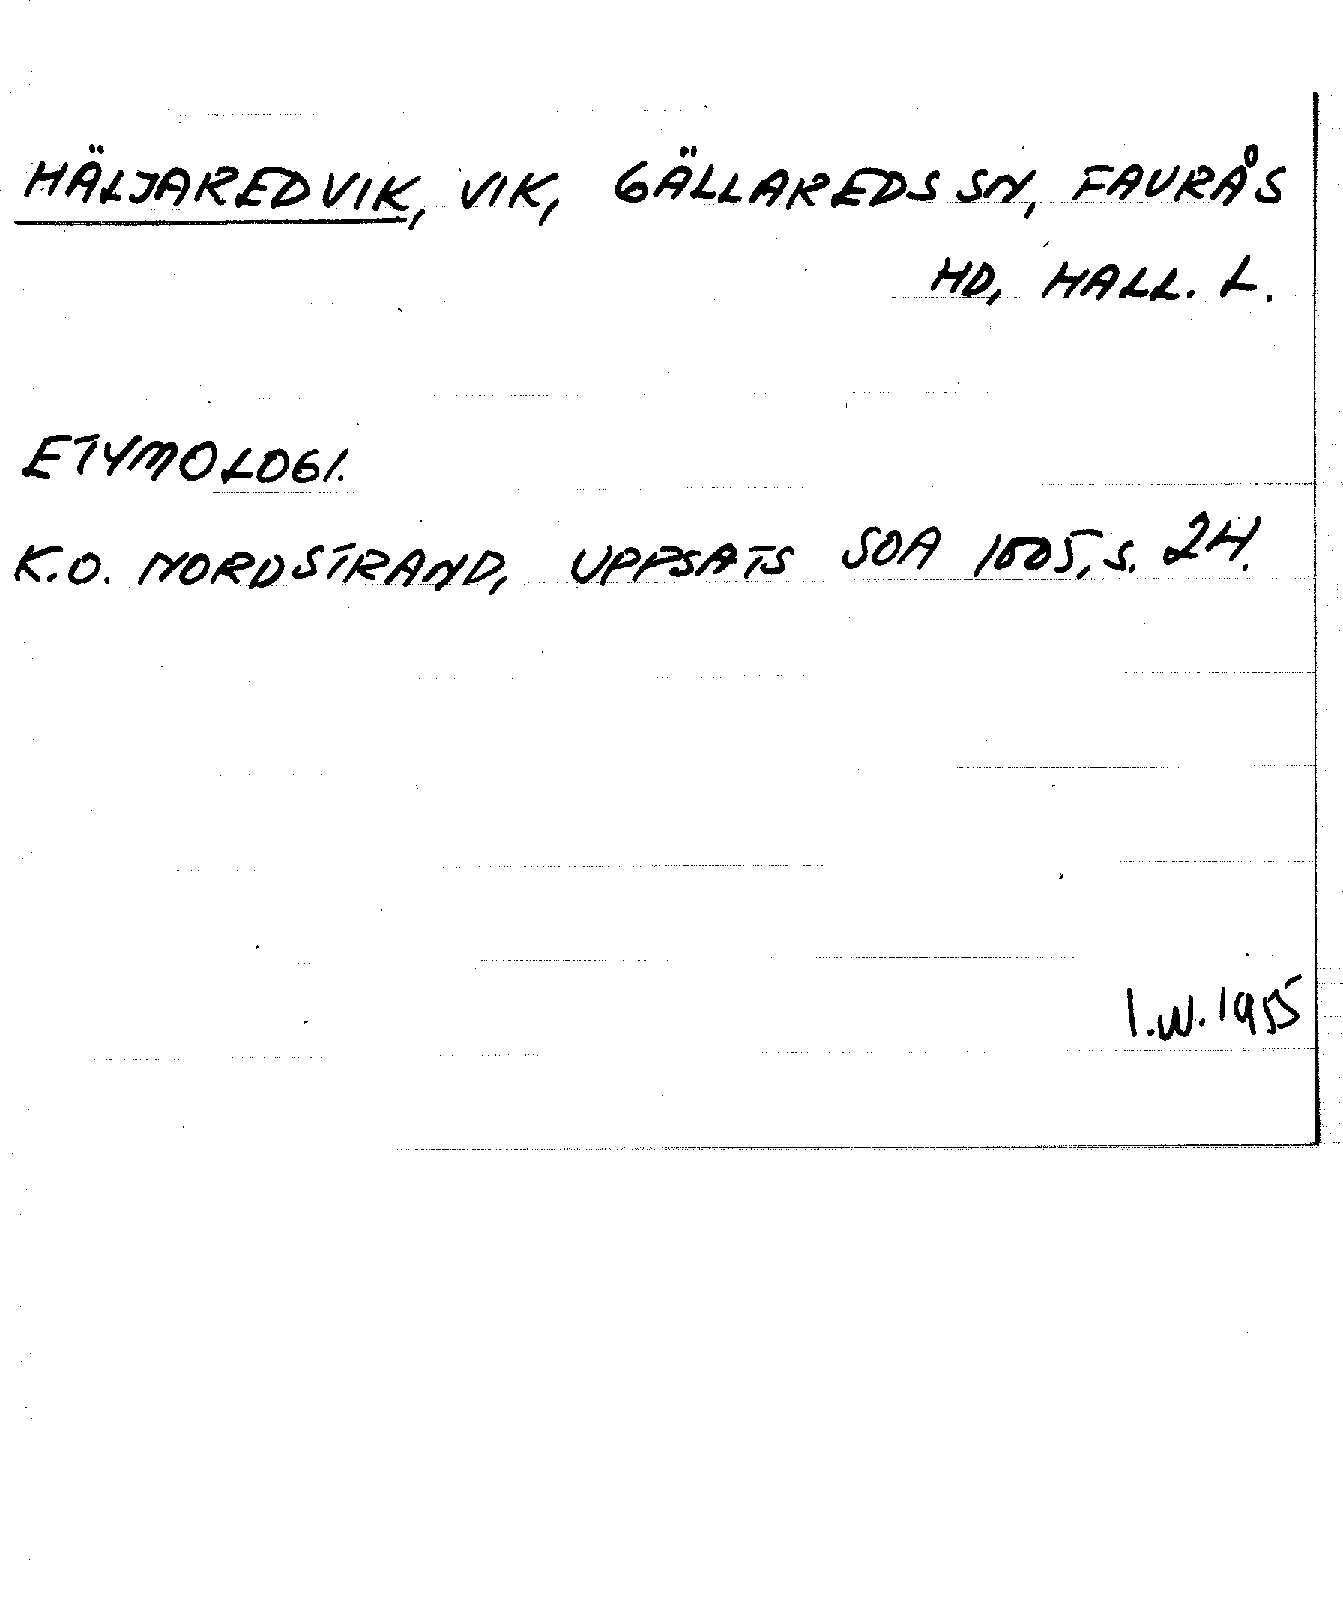 HÄLJAREDVIK, VIK, GÄLLAREDS SN, FAURÅS
HD, HALL. L.
ETYMOLOGI.
K.O. NORDSTRAND, UPPSATS SOA 1505, S. 24.
I.W. 1955